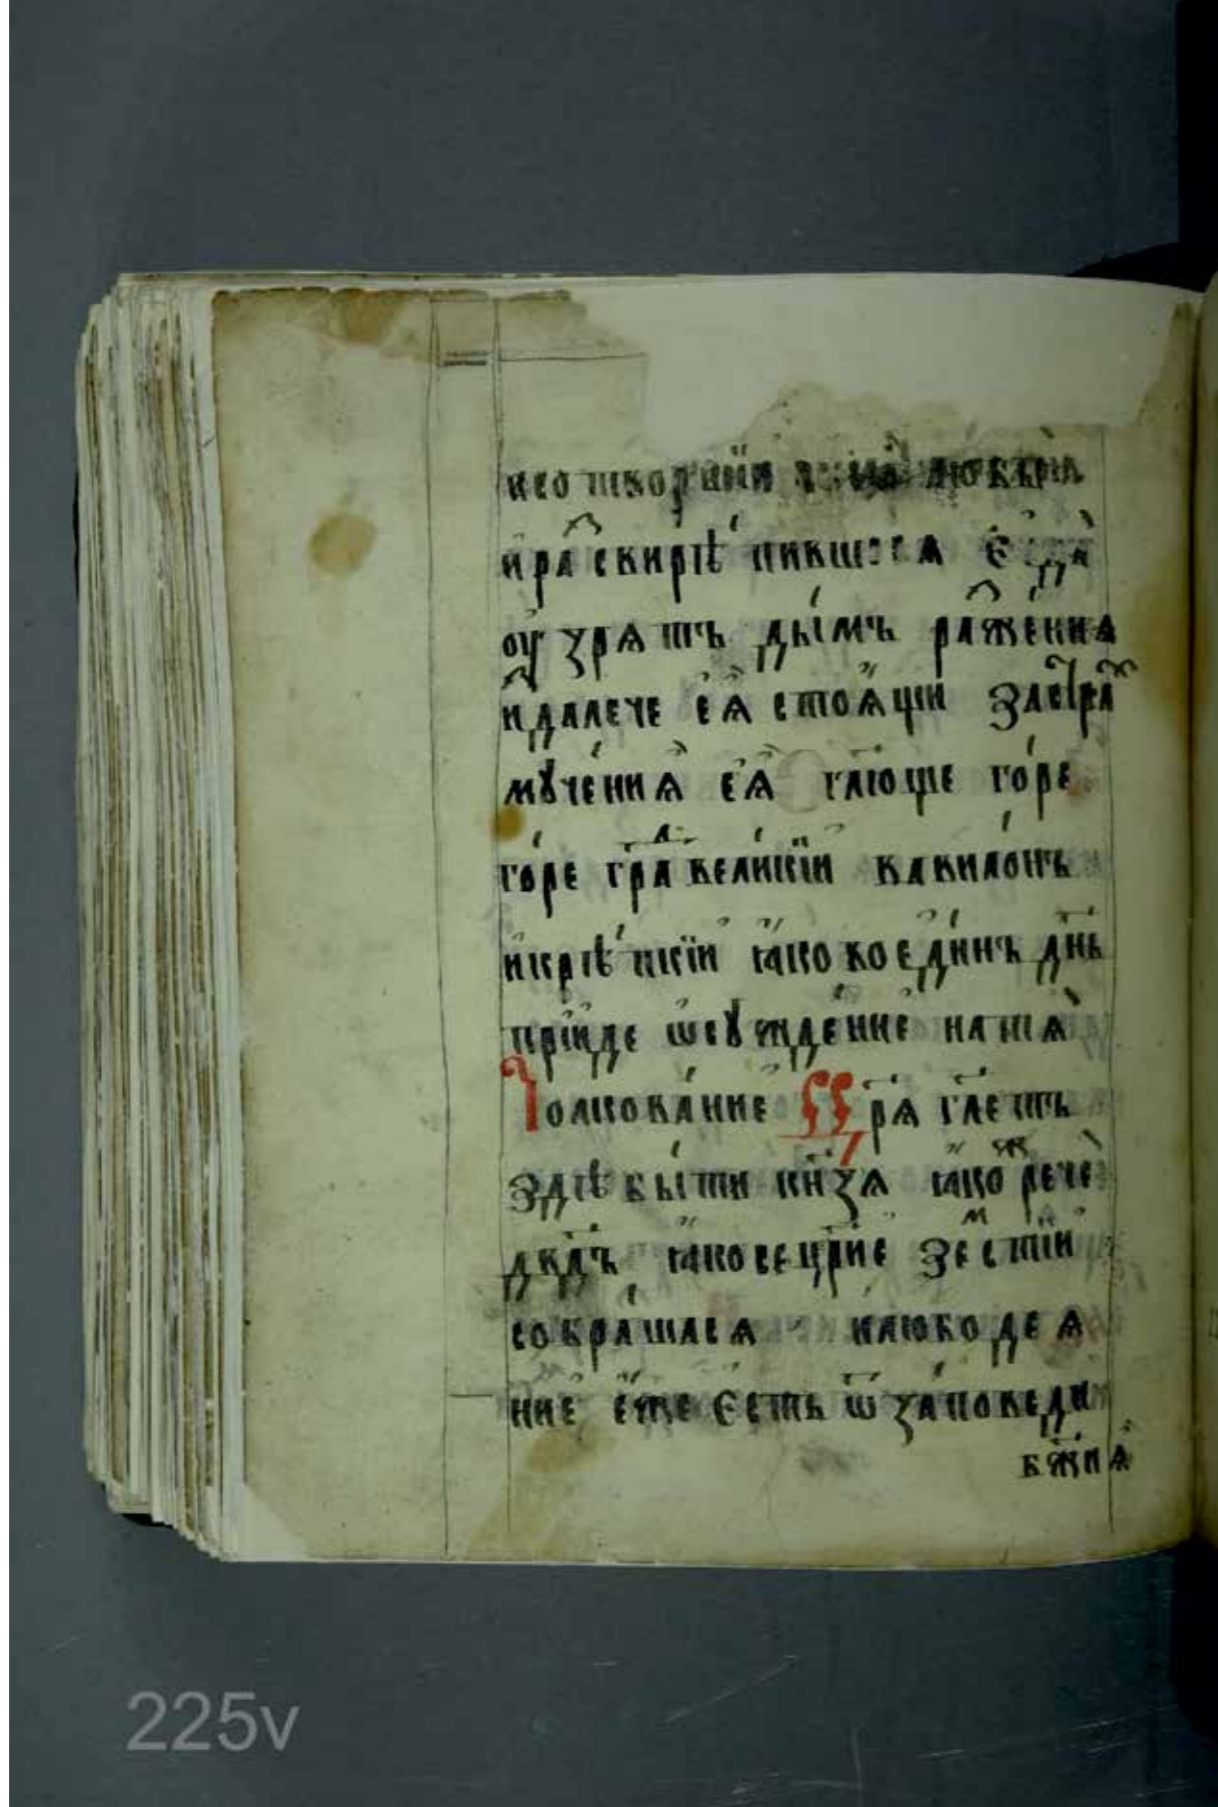 иѕотворшїи любыѧ
и҆ра̑свирѣ́пившесѧ є҆гда̀
ѹ҆зрѧтъ ды́мъ ра̑же́ниѧ
и̑здалече є҆ѧ̑ стоѧ̈щіи застра̑х
мꙋ́чениѧ̑ є҆ѧ̑ гл҃юще го́ре
го́ре гра҃дⷣ вели́кїи вавило́нъ
и҆крѣ́пкїи ꙗ҆ковоєди́нъ дн҃ь
прїи́де ѡ҆сꙋжде́ние натѧ̀
Толкова́ние рѧ҃ гл҃етъ
здѣ бы́ти кн҃зѧ ꙗ҆коⷤ речѐ
дв҃дъ ꙗ҆косецр҃ие зеⷨстїи
собра́шасѧ и҆любодеѧ
ние є҆же є҆сть ѿ за́поведи
бж҃иѧ
225v